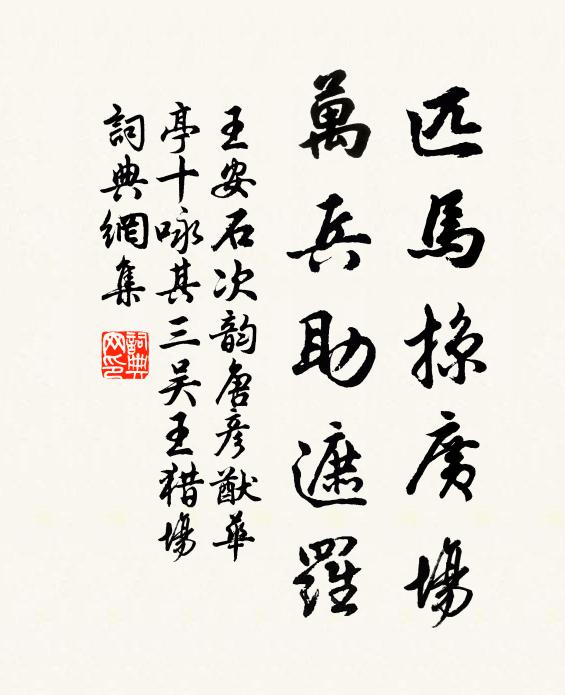 匹馬掠廣場
萬兵助遮羅
王安石次韵唐彦猷華
亭十咏其三吴王猎場
詞典網集
詞典
网印